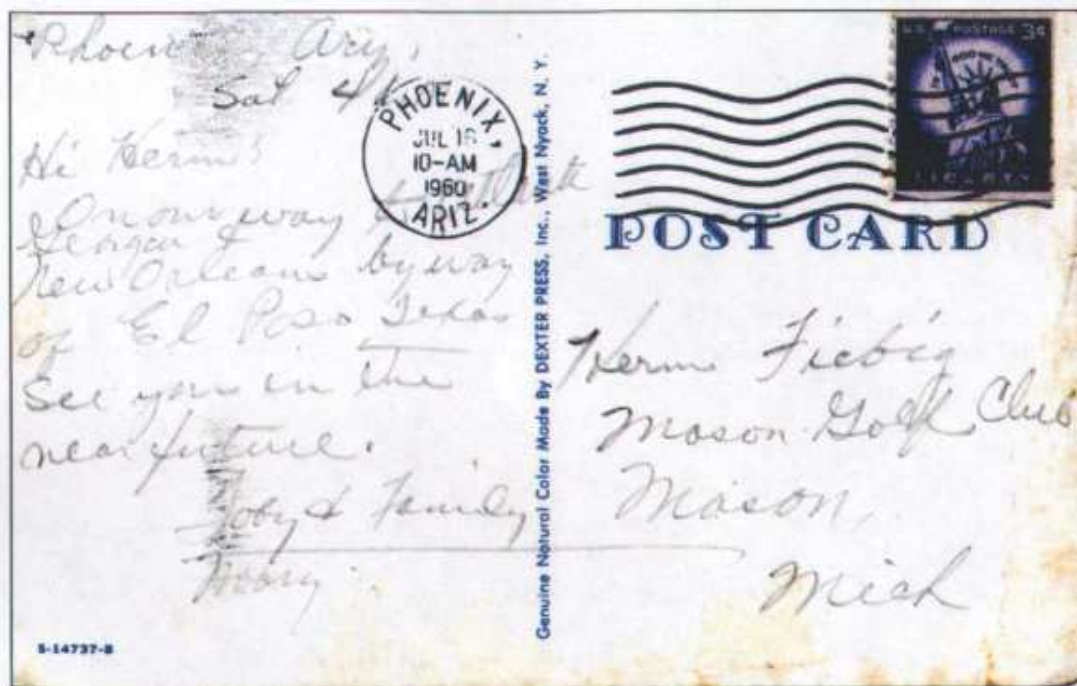 Phoenix Ariz,
Sat
Hi Herm!
On our way to Atlanta
Georgia &
New Orleans by way
of El Paso Texas
See you in the
near future.
Toby & Family
PHOENIX,
JUL 16
10-AM
1960
ARIZ.
Genuine Natural Color Made By DEXTER PRESS, Inc., West Nyack, N. Y.
U.S. POSTAGE 3¢
LIBERTY
POST CARD
Herm Fiebig
Mason Golf Club
Mason,
Mich
S-14737-B